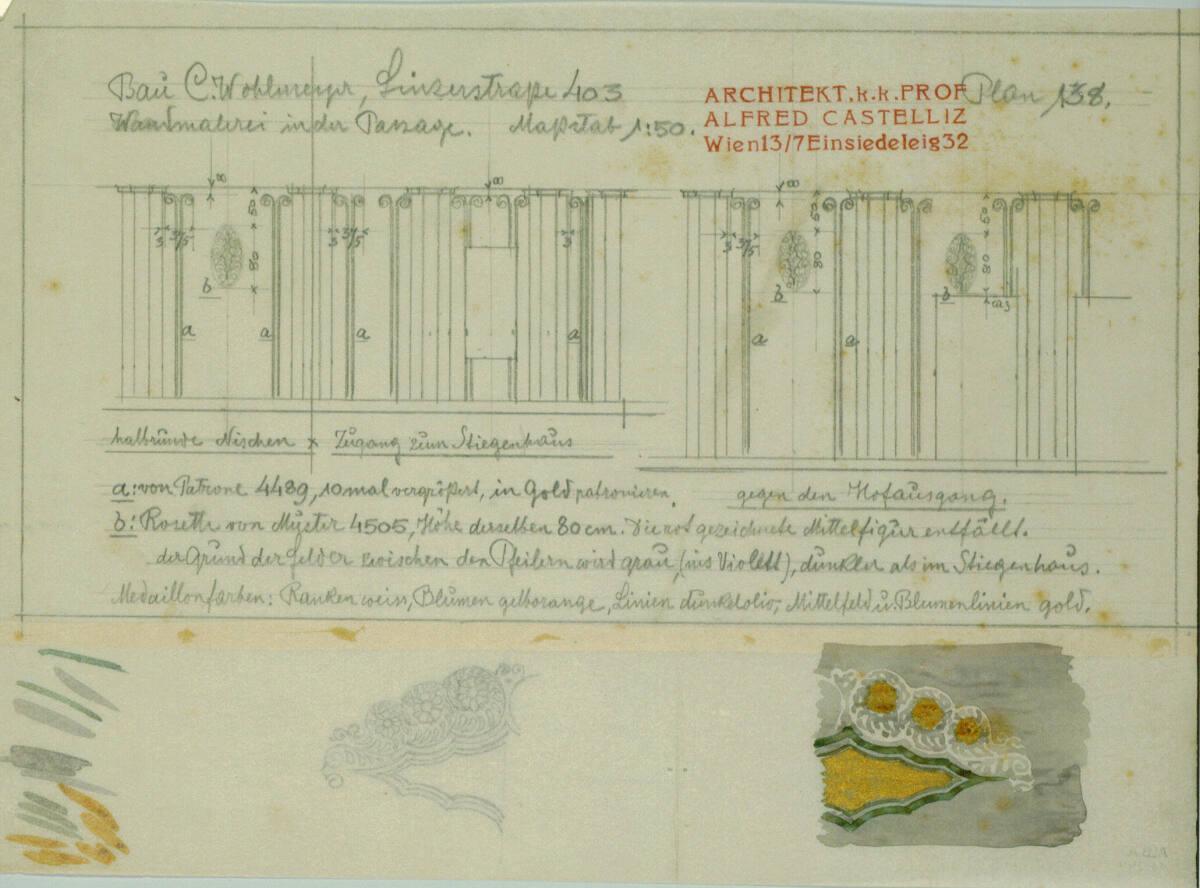 Bau C. Wohlmeyer, Linzerstraße 403
Wandmalerei in der Passage. Maßstab 1:50.
ARCHITEKT. k. k. PROF
ALFRED CASTELLIZ
Wien13/7Einsiedeleig32
Plan 138.
8 8 8
60 60 60
3 37/5 3 37/5 3 3 37/5
80 80 80
b b b
a a a a a a
halbrunde Nischen x Zugang zum Stiegenhaus
gegen den Hofausgang.
a: von Patrone 4489, 10 mal vergrößert, in Gold patronieren.
b: Rosette von Muster 4505, Höhe derselben 80 cm. Die rot gezeichnete Mittelfigur entfällt.
der Grund der Felder zwischen den Pfeilern wird grau, (ins Violett), dunkler als im Stiegenhaus.
Medaillonfarben: Ranken weiss, Blumen gelborange, Linien dunkeloliv, Mittelfeld u. Blumenlinien gold.